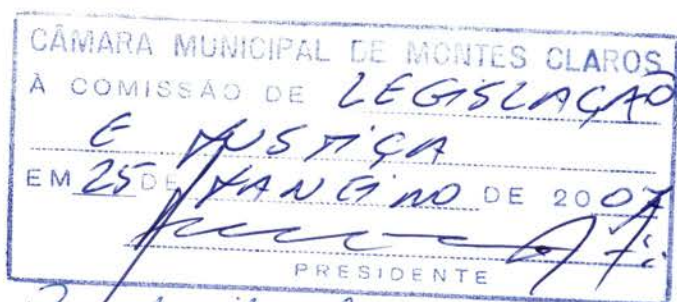 CÂMARA MUNICIPAL DE MONTES CLAROS
À COMISSÃO DE LEGISLAÇÃO
E JUSTIÇA
EM 25 DE JANEIRO DE 2007
PRESIDENTE